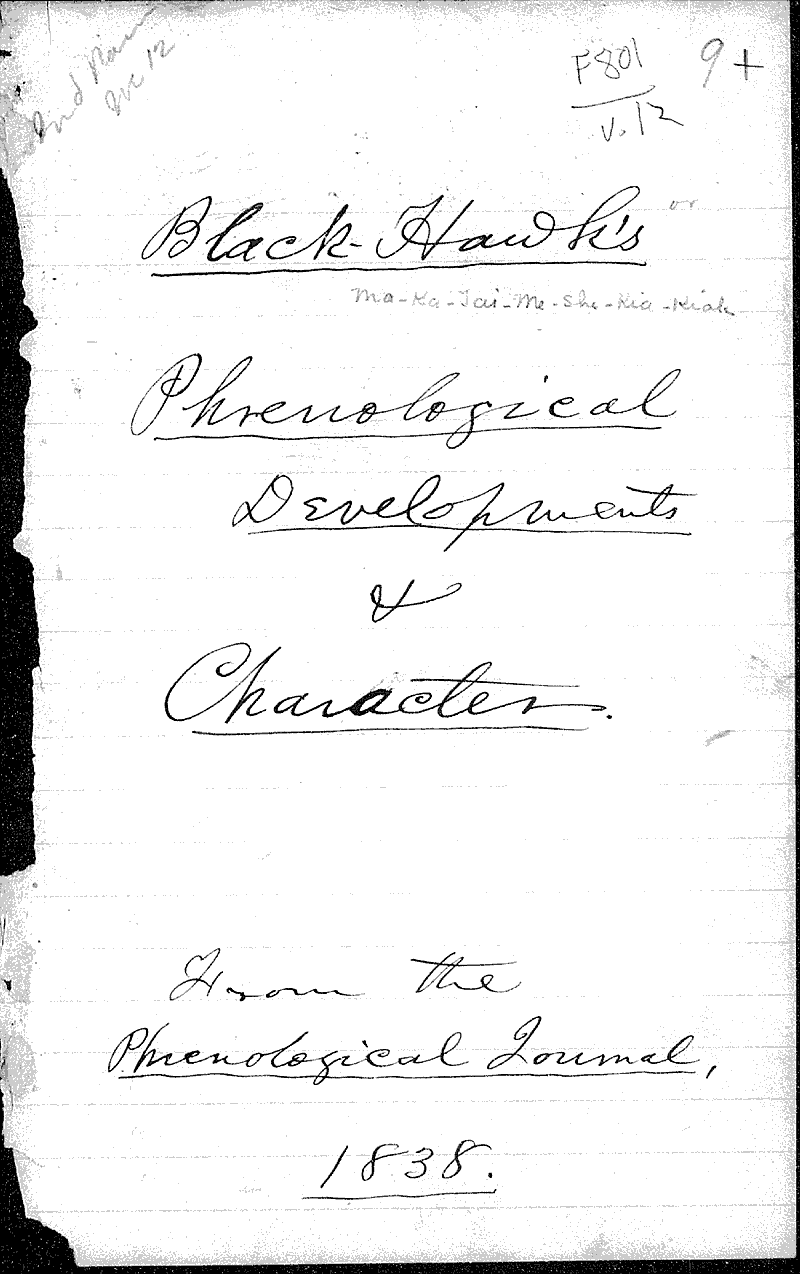 F801 9+
v. 12
Black-Hawk's or
Ma-Ka-Tai-Me-She-Kia-Kiak
Phrenological
Developments
&
Character.
From the
Phrenological Journal,
1838.